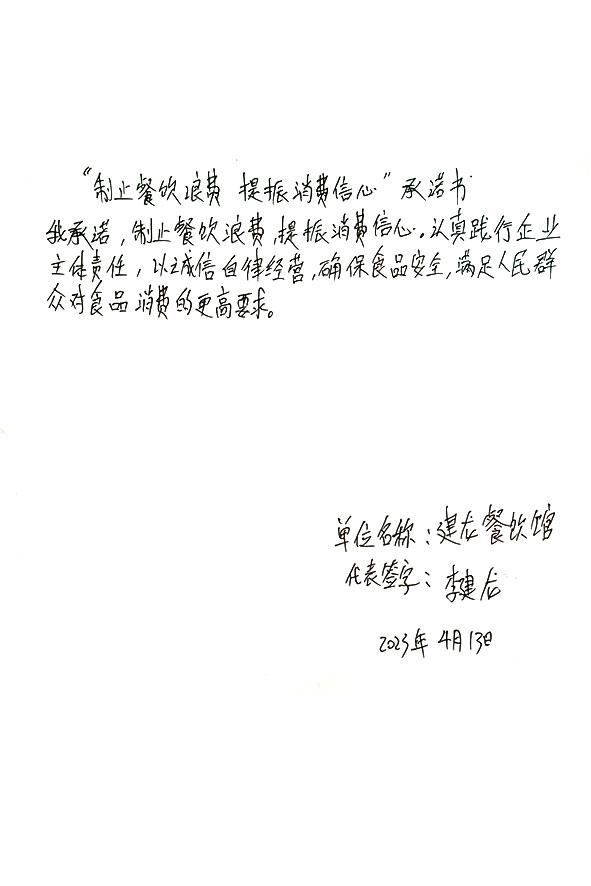 “制止餐饮浪费 提振消费信心”承诺书
我承诺，制止餐饮浪费，提振消费信心。认真践行企业
主体责任，以诚信自律经营，确保食品安全，满足人民群
众对食品消费的更高要求。
单位名称：建龙餐饮馆
代表签字：李建龙
2023年4月13日